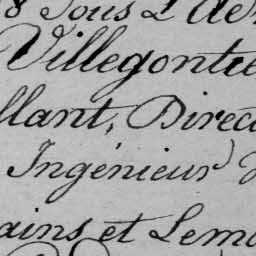 8 Sous L'
Villegontie
llant, Direc
Ingénieur
ains et Lem